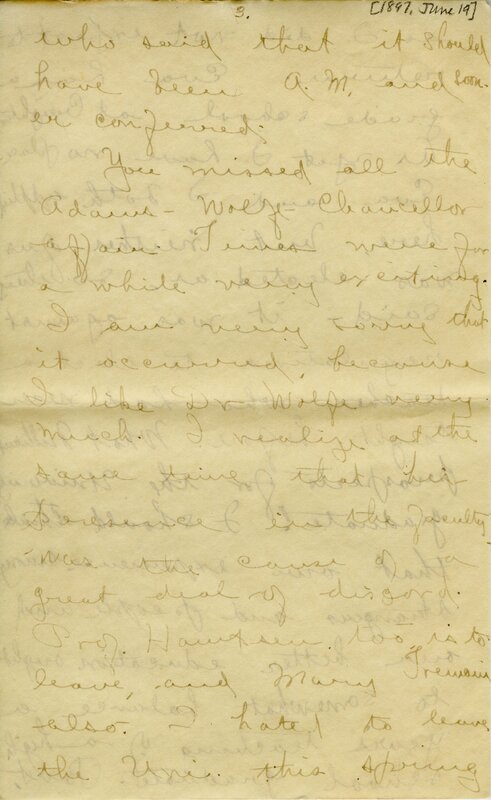 3.
[1897, June 19]
who said that it should
have been A.M. and soon-
er conferred.
You missed all the
Adams - Wolfe - Chancellor
affair. Times were for
a while very exciting.
I am very sorry that
it occurred, because
I like Dr Wolfe very
much. I realize at the
same time that his
presence in the faculty
was the cause of a
great deal of discord.
Prof. Hampsen too is to
leave, and Mary Tremain
also. I hated to leave
the Uni. this spring